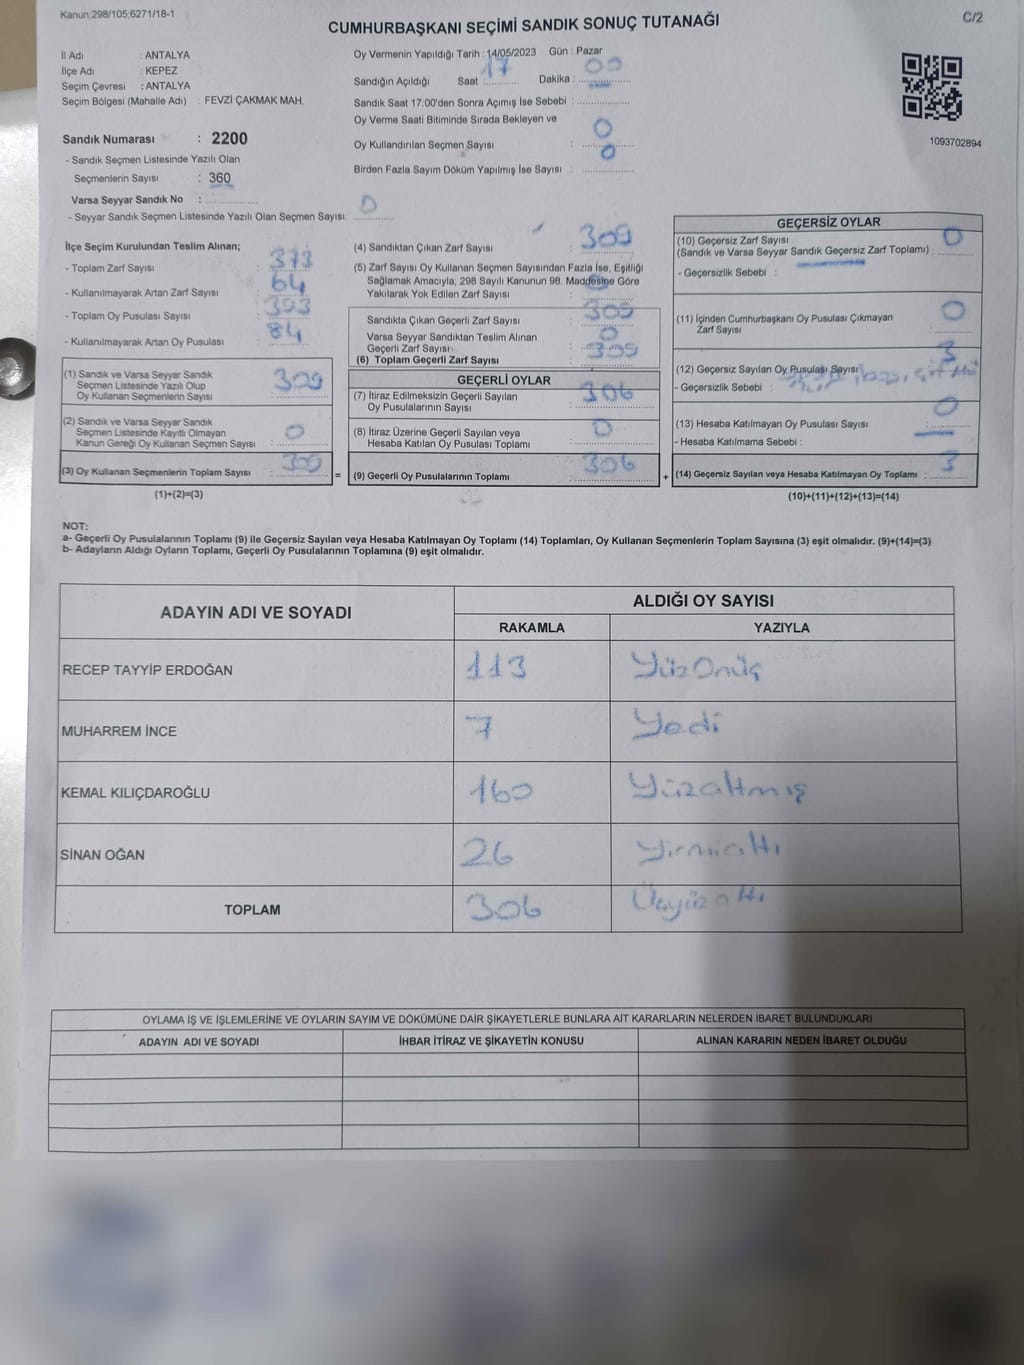 Kanun:298/105;6271/18-1
C/2
CUMHURBAŞKANI SEÇİMİ SANDIK SONUÇ TUTANAĞI
İl Adı : ANTALYA
İlçe Adı : KEPEZ
Seçim Çevresi : ANTALYA
Seçim Bölgesi (Mahalle Adı) : FEVZİ ÇAKMAK MAH.
Sandık Numarası : 2200
- Sandık Seçmen Listesinde Yazılı Olan
Seçmenlerin Sayısı : 360
Varsa Seyyar Sandık No :
- Seyyar Sandık Seçmen Listesinde Yazılı Olan Seçmen Sayısı: 0
Oy Vermenin Yapıldığı Tarih : 14/05/2023 Gün : Pazar
Sandığın Açıldığı Saat : 17 Dakika : 00
Sandık Saat 17:00'den Sonra Açımış İse Sebebi :
Oy Verme Saati Bitiminde Sırada Bekleyen ve
Oy Kullandırılan Seçmen Sayısı : 0
Birden Fazla Sayım Döküm Yapılmış İse Sayısı : 0
1093702894
İlçe Seçim Kurulundan Teslim Alınan;
- Toplam Zarf Sayısı : 373
- Kullanılmayarak Artan Zarf Sayısı : 64
- Toplam Oy Pusulası Sayısı : 393
- Kullanılmayarak Artan Oy Pusulası : 84
(1) Sandık ve Varsa Seyyar Sandık
Seçmen Listesinde Yazılı Olup
Oy Kullanan Seçmenlerin Sayısı : 309
(2) Sandık ve Varsa Seyyar Sandık
Seçmen Listesinde Kayıtlı Olmayan
Kanun Gereği Oy Kullanan Seçmen Sayısı : 0
(3) Oy Kullanan Seçmenlerin Toplam Sayısı : 309
(1)+(2)=(3)
=
(4) Sandıktan Çıkan Zarf Sayısı : 309
(5) Zarf Sayısı Oy Kullanan Seçmen Sayısından Fazla İse, Eşitliği
Sağlamak Amacıyla; 298 Sayılı Kanunun 98. Maddesine Göre
Yakılarak Yok Edilen Zarf Sayısı : 0
Sandıkta Çıkan Geçerli Zarf Sayısı : 309
Varsa Seyyar Sandıktan Teslim Alınan
Geçerli Zarf Sayısı : 0
(6) Toplam Geçerli Zarf Sayısı : 309
GEÇERLİ OYLAR
(7) İtiraz Edilmeksizin Geçerli Sayılan
Oy Pusulalarının Sayısı : 306
(8) İtiraz Üzerine Geçerli Sayılan veya
Hesaba Katılan Oy Pusulası Toplamı : 0
(9) Geçerli Oy Pusulalarının Toplamı : 306
+
GEÇERSİZ OYLAR
(10) Geçersiz Zarf Sayısı
(Sandık ve Varsa Seyyar Sandık Geçersiz Zarf Toplamı) : 0
- Geçersizlik Sebebi :
(11) İçinden Cumhurbaşkanı Oy Pusulası Çıkmayan
Zarf Sayısı : 0
(12) Geçersiz Sayılan Oy Pusulası Sayısı : 3
- Geçersizlik Sebebi :
(13) Hesaba Katılmayan Oy Pusulası Sayısı : 0
- Hesaba Katılmama Sebebi :
(14) Geçersiz Sayılan veya Hesaba Katılmayan Oy Toplamı : 3
(10)+(11)+(12)+(13)=(14)
NOT:
a- Geçerli Oy Pusulalarının Toplamı (9) ile Geçersiz Sayılan veya Hesaba Katılmayan Oy Toplamı (14) Toplamları, Oy Kullanan Seçmenlerin Toplam Sayısına (3) eşit olmalıdır. (9)+(14)=(3)
b- Adayların Aldığı Oyların Toplamı, Geçerli Oy Pusulalarının Toplamına (9) eşit olmalıdır.
ADAYIN ADI VE SOYADI
ALDIĞI OY SAYISI
RAKAMLA YAZIYLA
RECEP TAYYİP ERDOĞAN 113 Yüzonüç
MUHARREM İNCE 7 Yedi
KEMAL KILIÇDAROĞLU 160 Yüzaltmış
SİNAN OĞAN 26 Yirmialtı
TOPLAM 306 Üçyüzaltı
OYLAMA İŞ VE İŞLEMLERİNE VE OYLARIN SAYIM VE DÖKÜMÜNE DAİR ŞİKAYETLERLE BUNLARA AİT KARARLARIN NELERDEN İBARET BULUNDUKLARI
ADAYIN ADI VE SOYADI İHBAR İTİRAZ VE ŞİKAYETİN KONUSU ALINAN KARARIN NEDEN İBARET OLDUĞU